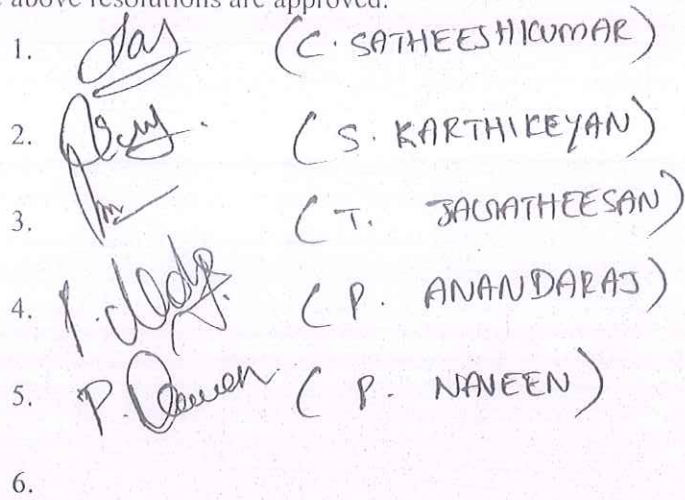 above resolutions are approved.
1. (C. SATHEESHKUMAR)
2. (S. KARTHIKEYAN)
3. (T. JAGATHEESAN)
4. (P. ANANDARAJ)
5. P. Naveen (P. NAVEEN)
6.